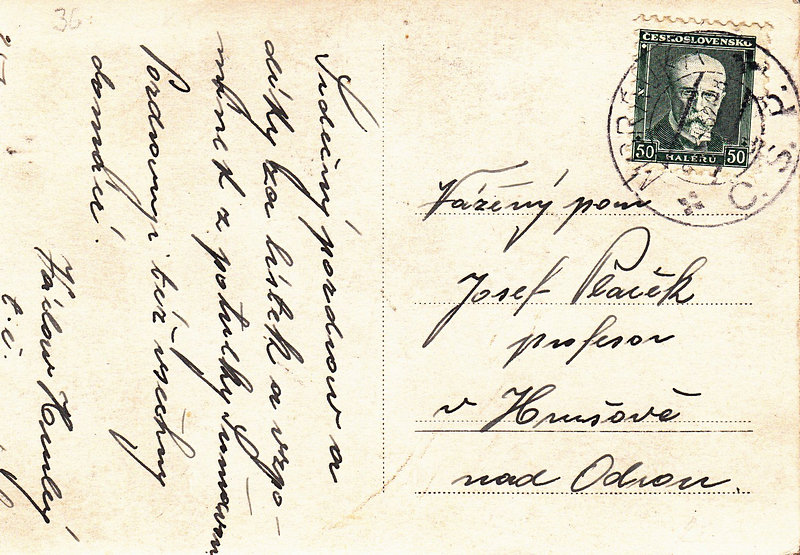 36
Srdečný pozdrav a
díky za lístek a vzpo-
mínek z potulky Šumavou
Pozdravuji též všechny
doma.
Václav
t.č.
ČESKOSLOVENSKO
50 HALÉŘŮ 50
Č.S.R.
Vážený pan
Josef Plaček
profesor
v Hrušově
nad Odrou.